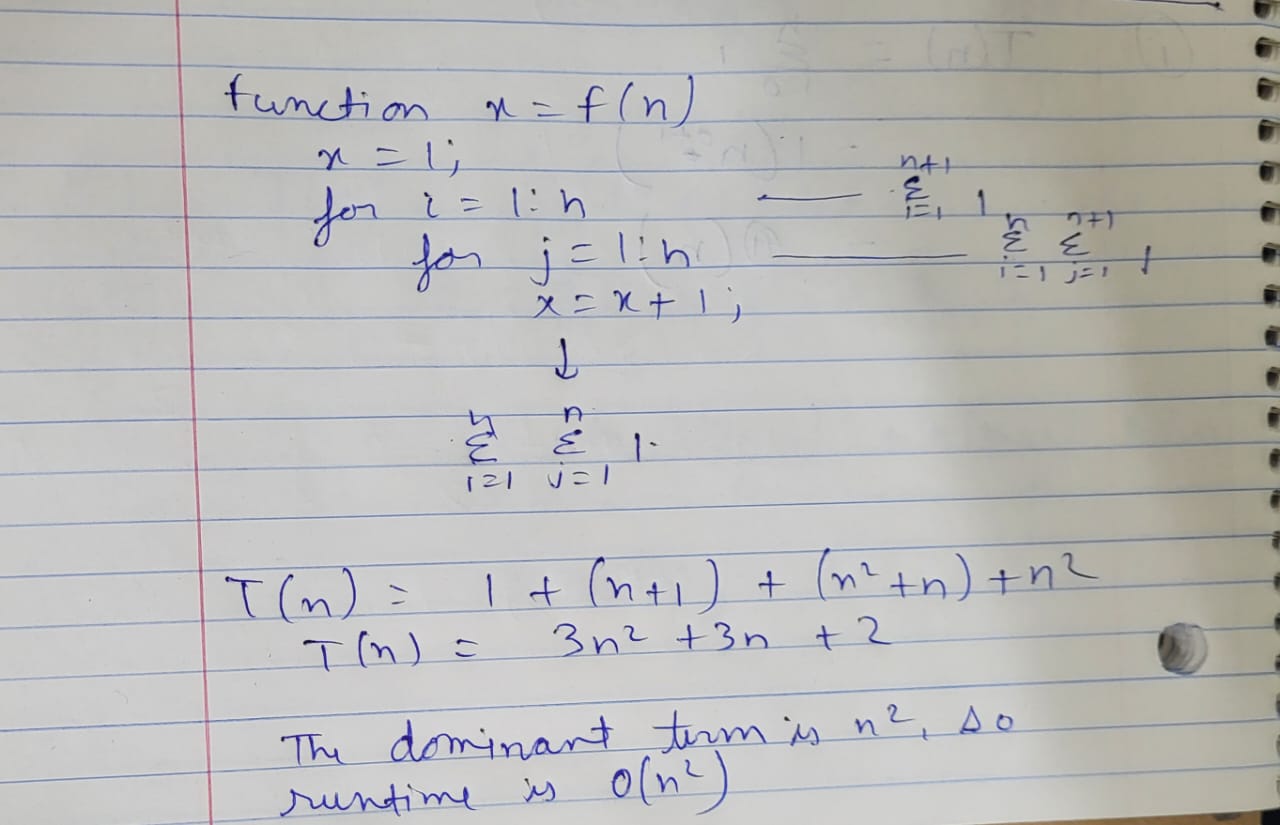 function x = f(n)
x = 1;
for i = 1:n —— n+1 Σ i=1 1
for j = 1:n —— n Σ i=1 n+1 Σ j=1 1
x = x + 1;
↓
n Σ i=1 n Σ j=1 1.
T(n) = 1 + (n+1) + (n² + n) + n²
T(n) = 3n² + 3n + 2
The dominant term is n², so
runtime is O(n²)